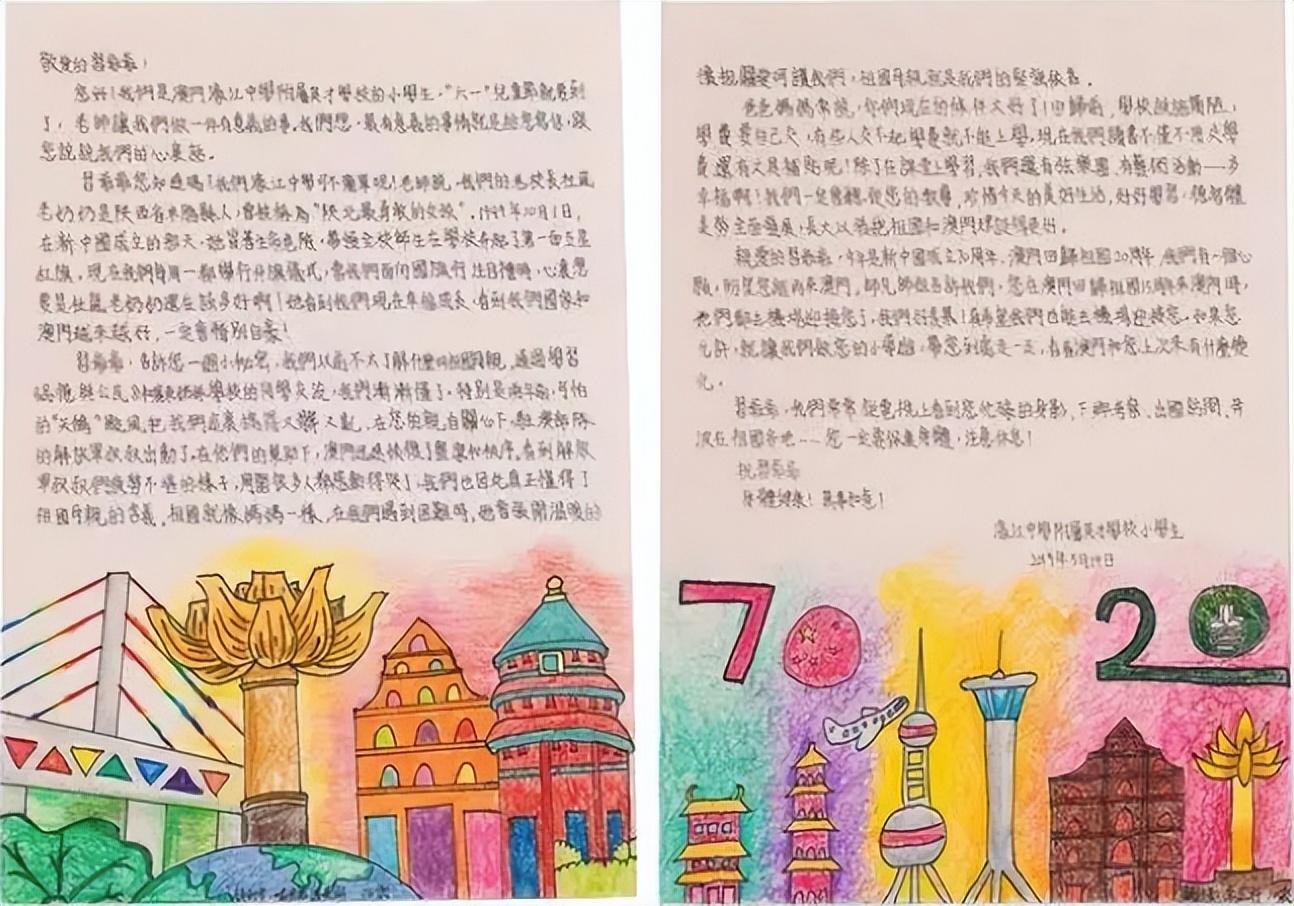 敬愛的習爺爺：
您好！我們是澳門濠江中學附屬英才學校的小學生，"六一"兒童節就要到
了，老師讓我們做一件有意義的事，我們想，最有意義的事情就是給您寫信，跟
您說說我們的心裏話。
習爺爺您知道嗎？我們濠江中學可不簡單呢！老師說，我們的老校長杜嵐
老奶奶是陝西省米脂縣人，曾被稱為"陝北最勇敢的女孩"。1949年10月1日，
在新中國成立的那天，她冒着生命危險，帶領全校師生在學校升起了第一面五星
紅旗。現在我們每周一都舉行升旗儀式，當我們面向國旗行注目禮時，心裏想
要是杜嵐老奶奶還在該多好啊！她看到我們現在幸福成長，看到我們國家和
澳門越來越好，一定會特別自豪！
習爺爺，告訴您一個小秘密，我們以前不太了解什麼叫祖國母親，通過學習
品德與公民 學校的同學交流，我們漸漸懂了。特別是兩年前，可怕
的"天鴿"颱風把我們家裏搞得又髒又亂，在您的親自關心下，駐澳部隊
的解放軍叔叔出動了，在他們的幫助下，澳門迅速恢復了整潔和秩序。看到解放
軍叔叔們疲勞不堪的樣子，周圍很多人都感動得哭了，我們也因此真正懂得了
祖國母親的含義，祖國就像媽媽一樣，在我們遇到困難時，她會張開溫暖的
懷抱關愛呵護我們，祖國母親就是我們的堅強依靠。
爸爸媽媽常說，你們現在的條件太好了！回歸前，學校設施簡陋，
學費要自己交，有些人交不起學費就不能上學，現在我們讀書不僅不用交學
費還有文具補貼呢！除了在課堂上學習，我們還有弦樂團、有藝術活動——多
幸福啊！我們一定會聽從您的教導，珍惜今天的美好生活，好好學習，德智體
美勞全面發展，長大以後把祖國和澳門建設得更好。
親愛的習爺爺，今年是新中國成立70周年，澳門回歸祖國20周年，我們有一個心
願，盼望您能再來澳門。師兄師姐告訴我們，您在澳門回歸祖國15周年來澳門時，
他們都去機場迎接您了，我們好羨慕！真希望我們也能去機場迎接您。如果您
允許，就讓我們做您的小導遊，帶您到處走一走，看看澳門和您上次來有什麼變
化。
習爺爺，我們常常從電視上看到您忙碌的身影，下鄉考察、出國訪問、奔
波在祖國各地……您一定要保重身體，注意休息！
祝習爺爺
身體健康！萬事如意！
濠江中學附屬英才學校小學生
2019年5月19日
70
20